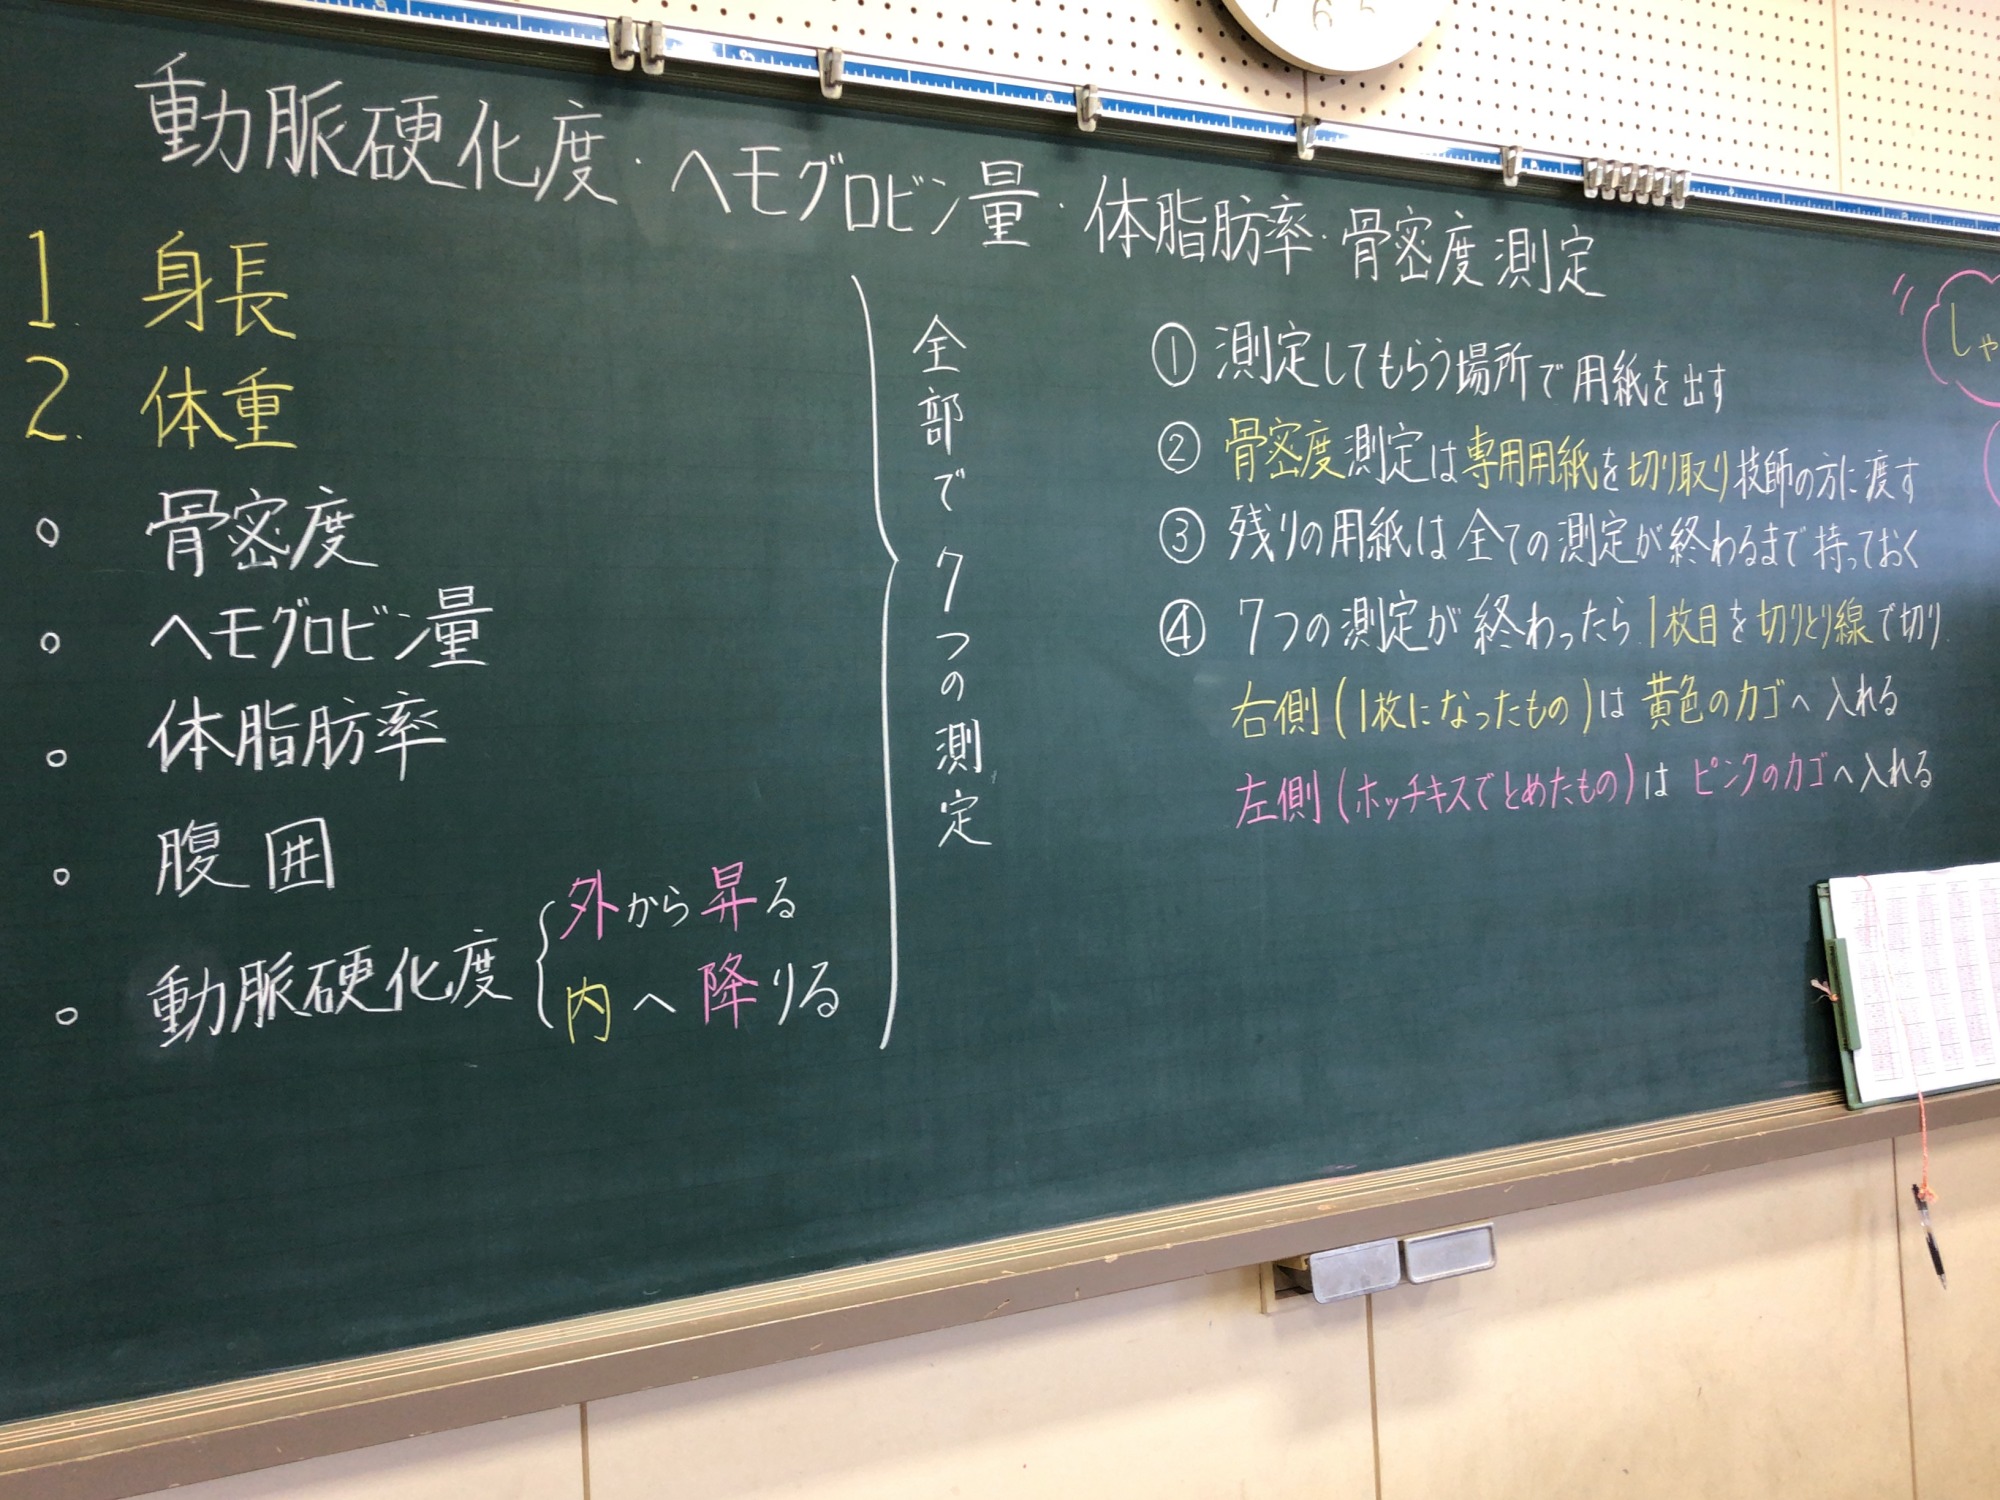 動脈硬化度・ヘモグロビン量・体脂肪率・骨密度測定
1. 身長
2. 体重
○ 骨密度
○ ヘモグロビン量
○ 体脂肪率
○ 腹囲
○ 動脈硬化度
外から昇る
内へ降りる
全部で7つの測定
① 測定してもらう場所で用紙を出す
② 骨密度測定は専用用紙を切り取り技師の方に渡す
③ 残りの用紙は全ての測定が終わるまで持っておく
④ 7つの測定が終わったら1枚目を切りとり線で切り
右側(1枚になったもの)は黄色のカゴへ入れる
左側(ホッチキスでとめたもの)はピンクのカゴへ入れる
しゃ